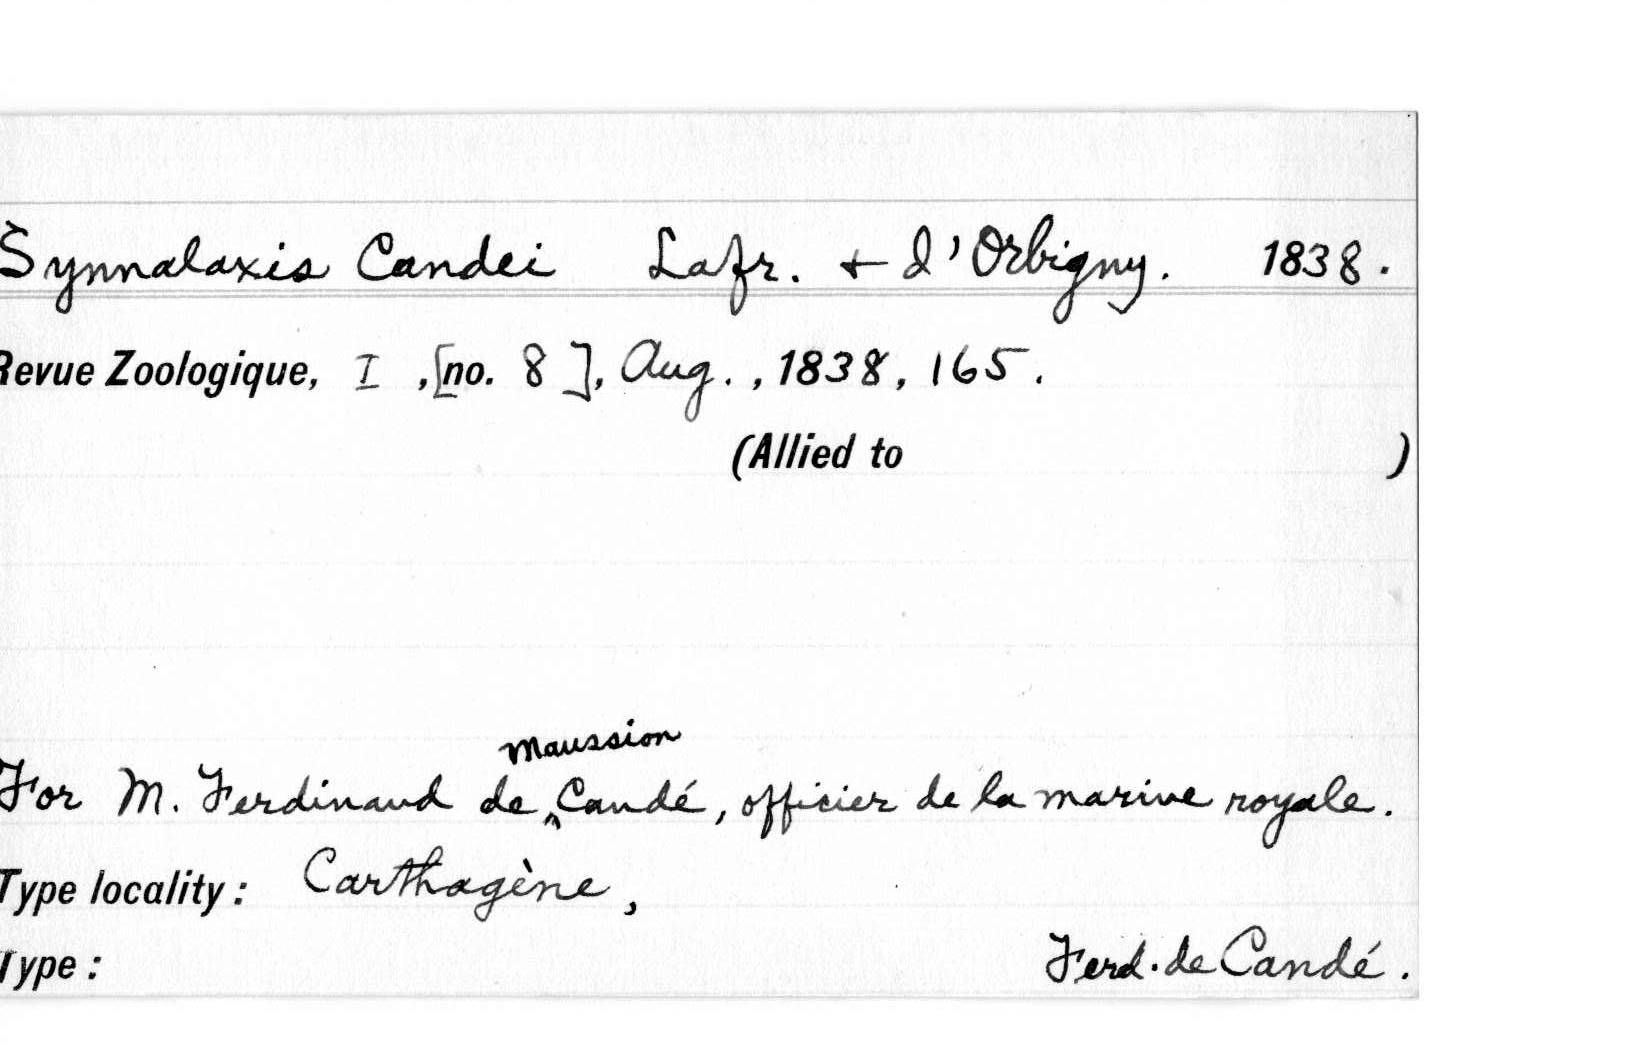 Synnalaxis Candei Lafr. + d'Orbigny. 1838.
Revue Zoologique, I, [no. 8], Aug., 1838, 165.
(Allied to )
Maussion
For M. Ferdinand de ‸ Candé, officier de la marine royale.
Type locality: Carthagène,
Type: Ferd. de Candé.